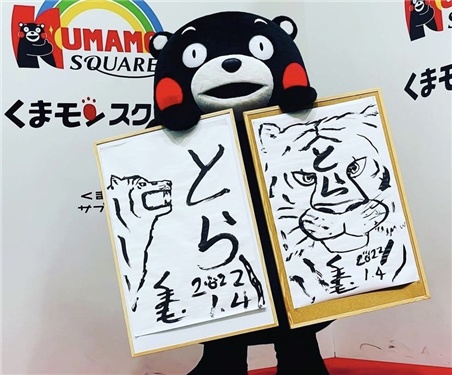 KUMAMO
SQUARE
くまモンスク
とら
2022
1.4
とら
2022
1.4